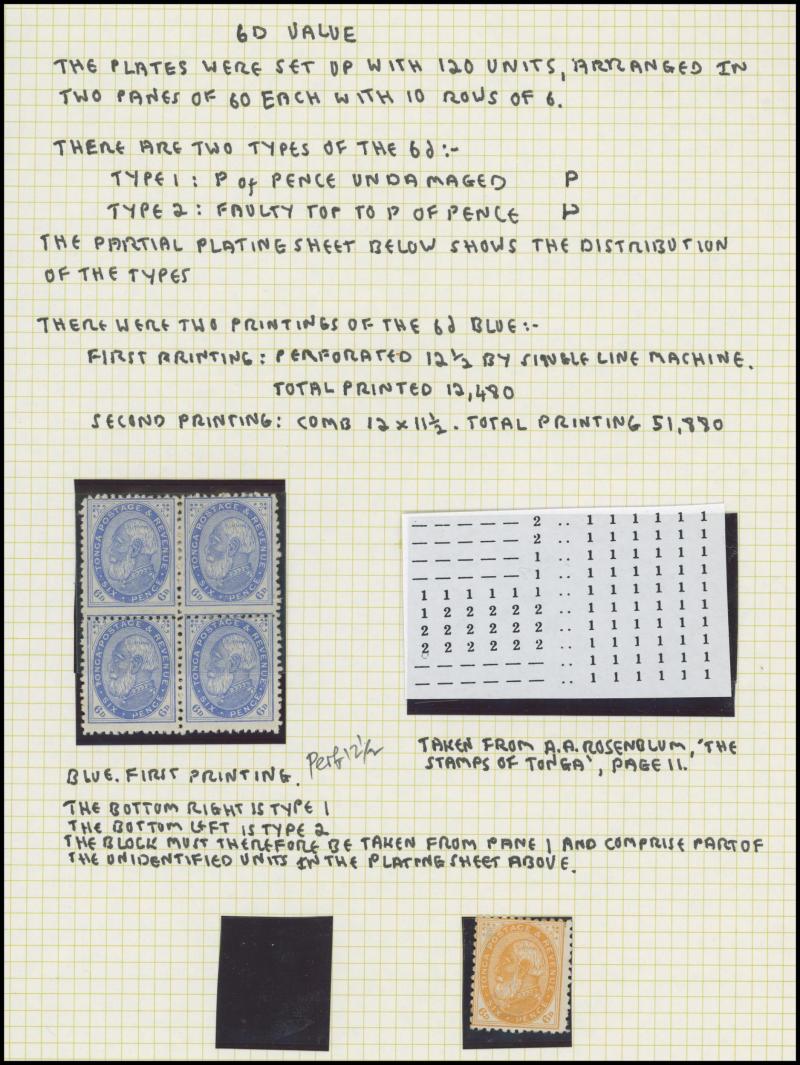 6D VALUE
THE PLATES WERE SET UP WITH 120 UNITS, ARRANGED IN
TWO PANES OF 60 EACH WITH 10 ROWS OF 6.
THERE ARE TWO TYPES OF THE 6d:-
TYPE 1: P of PENCE UNDAMAGED P
TYPE 2: FAULTY TOP TO P OF PENCE
THE PARTIAL PLATING SHEET BELOW SHOWS THE DISTRIBUTION
OF THE TYPES
THERE WERE TWO PRINTINGS OF THE 6d BLUE:-
FIRST PRINTING: PERFORATED 12½ BY SINGLE LINE MACHINE.
TOTAL PRINTED 12,480
SECOND PRINTING: COMB 12 x 11½. TOTAL PRINTING 51,880
TONGA POSTAGE & REVENUE
SIX PENCE
6D 6D
TONGA POSTAGE & REVENUE
SIX PENCE
6D 6D
TONGA POSTAGE & REVENUE
SIX PENCE
6D 6D
TONGA POSTAGE & REVENUE
SIX PENCE
6D 6D
— — — — — 2 .. 1 1 1 1 1 1
— — — — — 2 .. 1 1 1 1 1 1
— — — — — 1 .. 1 1 1 1 1 1
— — — — — 1 .. 1 1 1 1 1 1
1 1 1 1 1 1 .. 1 1 1 1 1 1
1 2 2 2 2 2 .. 1 1 1 1 1 1
2 2 2 2 2 2 .. 1 1 1 1 1 1
2 2 2 2 2 2 .. 1 1 1 1 1 1
— — — — — — .. 1 1 1 1 1 1
— — — — — — .. 1 1 1 1 1 1
TAKEN FROM A.A. ROSENBLUM, "THE
STAMPS OF TONGA", PAGE 11.
BLUE. FIRST PRINTING. Perf 12½
THE BOTTOM RIGHT IS TYPE 1
THE BOTTOM LEFT IS TYPE 2
THE BLOCK MUST THEREFORE BE TAKEN FROM PANE 1 AND COMPRISE PART OF
THE UNIDENTIFIED UNITS IN THE PLATING SHEET ABOVE.
TONGA POSTAGE & REVENUE
SIX PENCE
6D 6D